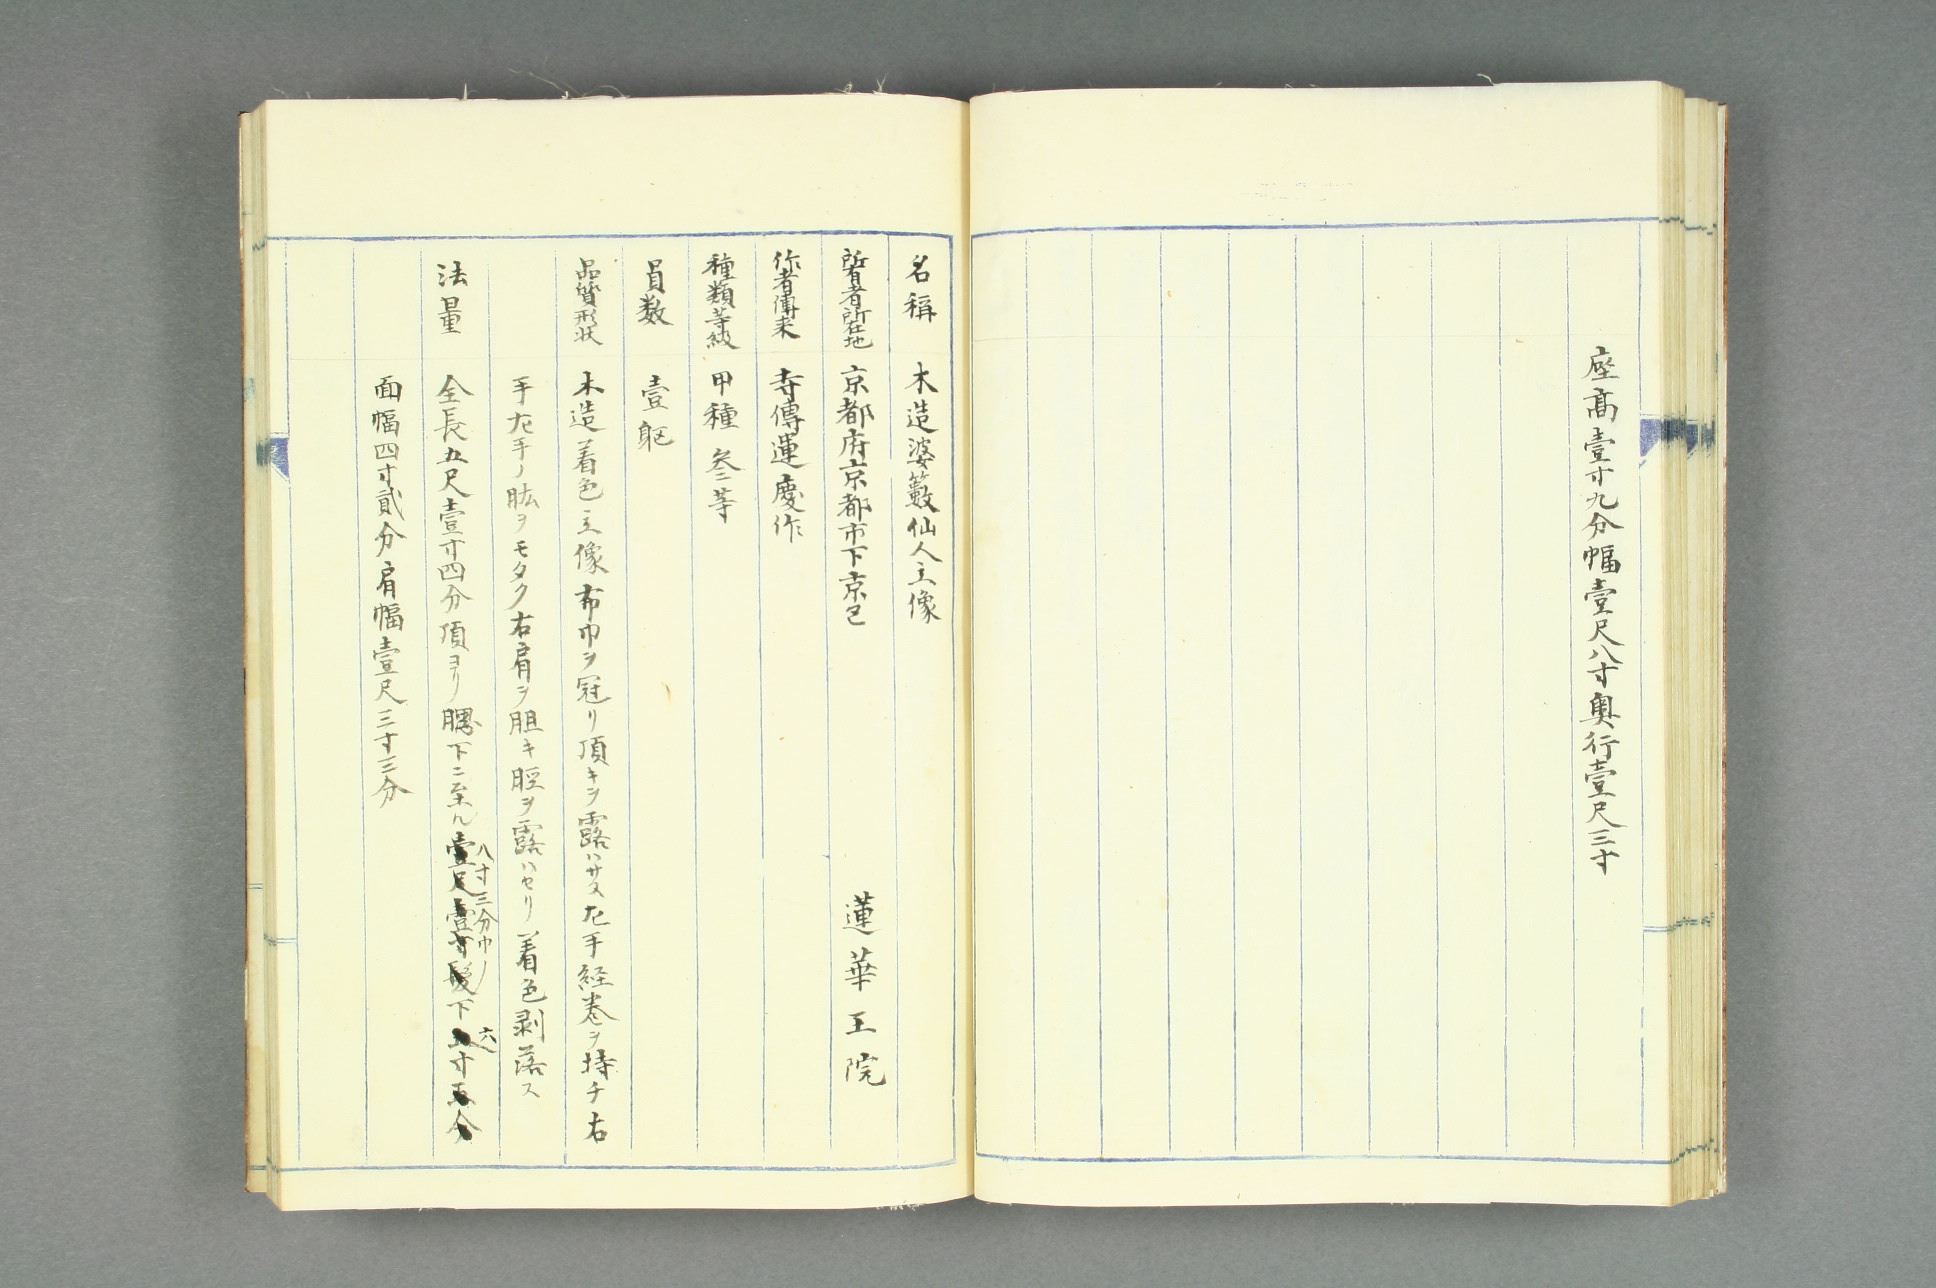 座高壹寸九分幅壹尺八寸奥行壹尺三寸
名稱 木造婆籔仙人立像
所有者所在地 京都府京都市下京区 蓮華王院
作者傳来 寺傳運慶作
種類等級 甲種 参等
員数 壹躯
品質形状 木造着色立像布巾ヲ冠リ頂キヲ露ハサス左手経巻ヲ持チ右
手左手ノ肱ヲモタク右肩ヲ胆キ脛ヲ露ハセリ着色剥落ス
法量 全長五尺壹寸四分頂ヨリ腮下ニ至ル壹尺壹寸髪下寸五分
八寸三分巾ノ
六
面幅四寸貳分肩幅壹尺三寸三分